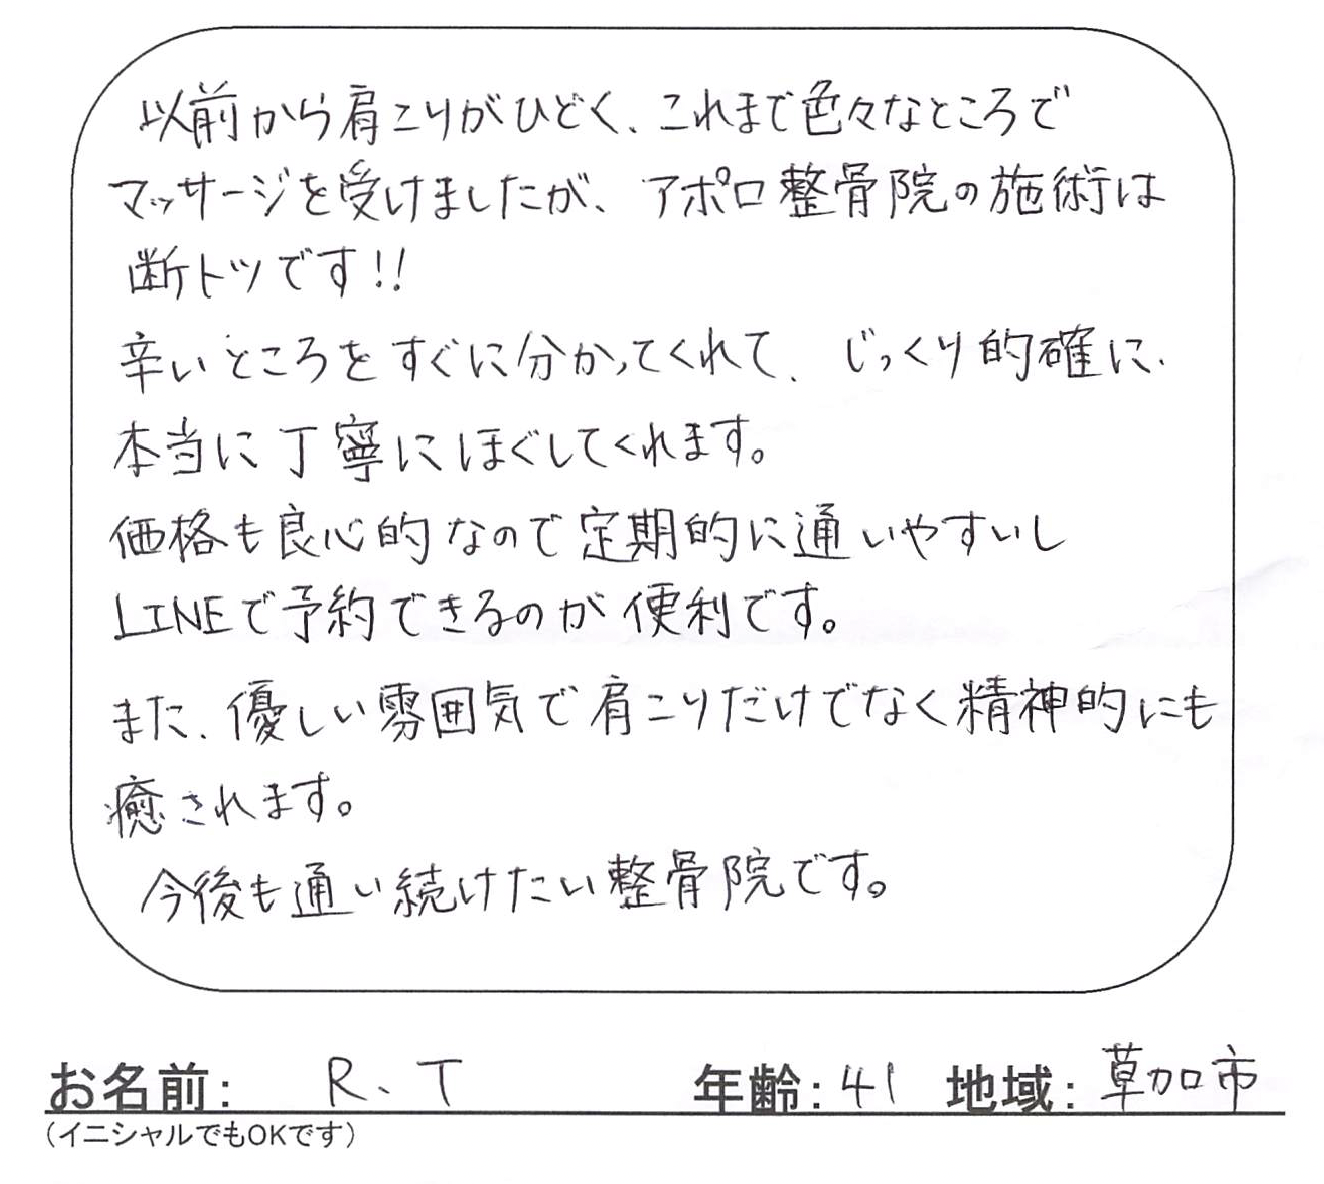 以前から肩こりがひどく、これまで色々なところで
マッサージを受けましたが、アポロ整骨院の施術は
断トツです!!
辛いところをすぐに分かってくれて、じっくり的確に、
本当に丁寧にほぐしてくれます。
価格も良心的なので定期的に通いやすいし
LINEで予約できるのが便利です。
また、優しい雰囲気で肩こりだけでなく精神的にも
癒されます。
今後も通い続けたい整骨院です。
お名前: R、T 年齢: 41 地域: 草加市
(イニシャルでもOKです)